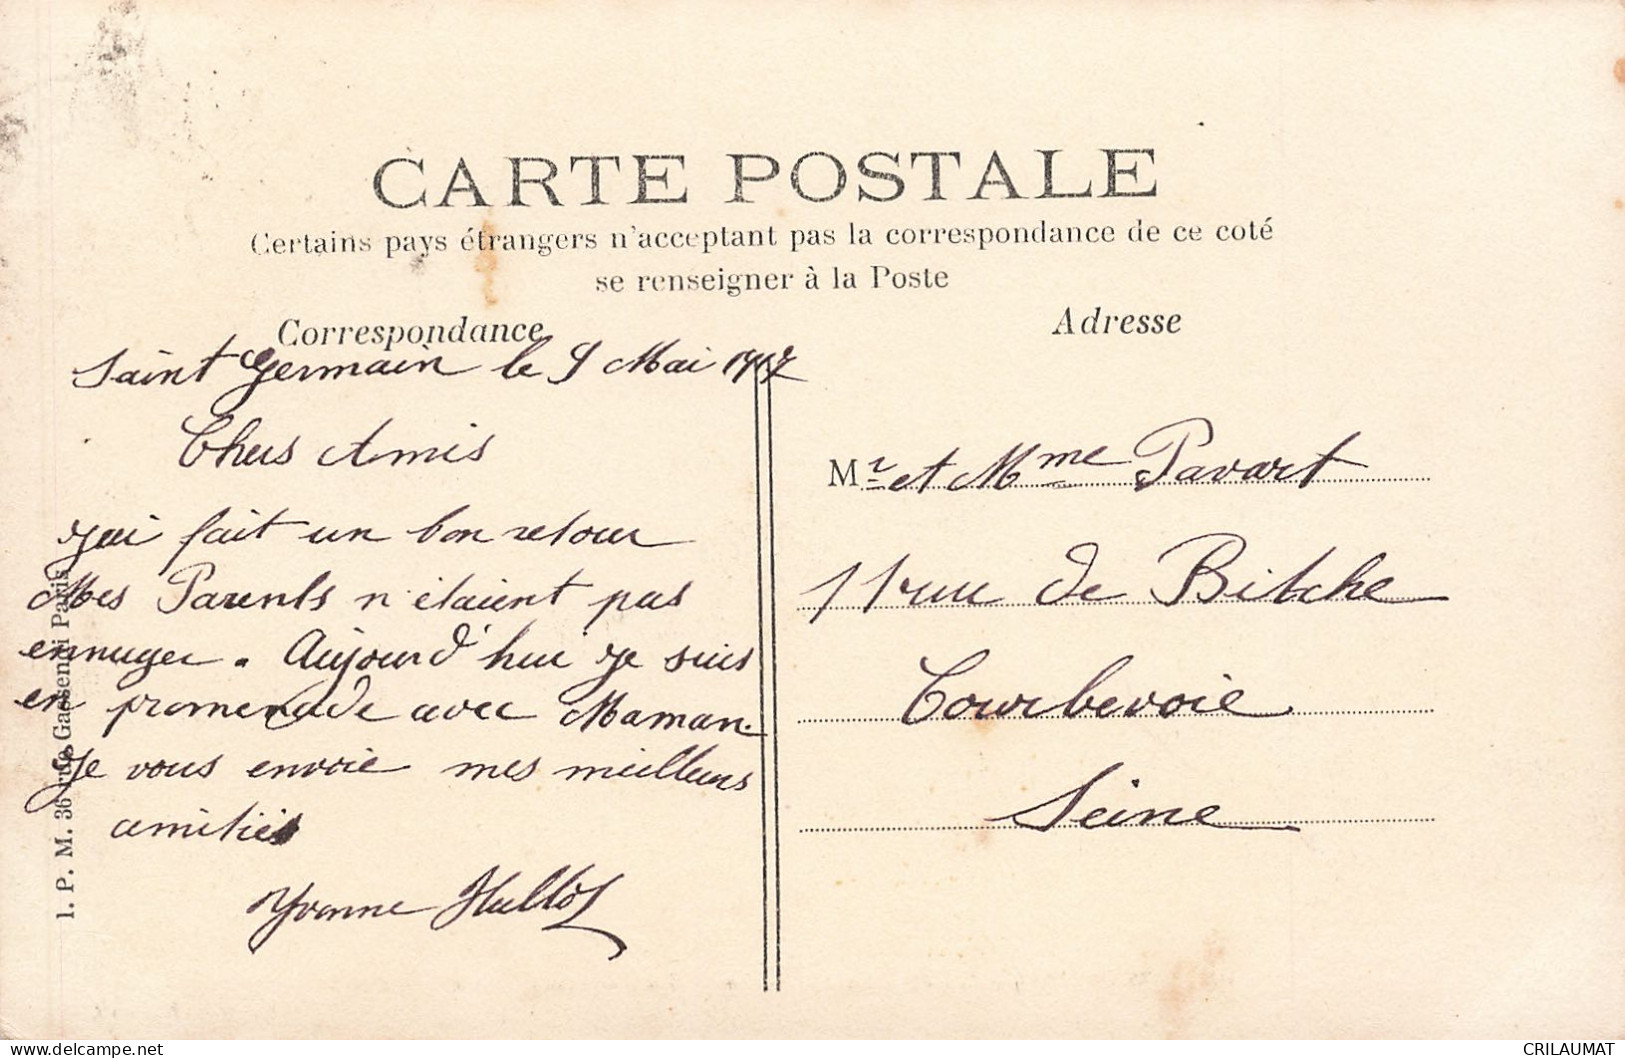 CARTE POSTALE
Certains pays étrangers n'acceptant pas la correspondance de ce coté
se renseigner à la Poste
Correspondance
Saint Germain le 9 Mai
Chers Amis
J'ai fait un bon retour
Mes Parents n'étaient pas
ennuyer. Aujourd'hui je suis
en promenade avec Maman.
Je vous envoie mes meilleurs
amitiés
Yvonne
Adresse
Mr et Mme Pavart
11 rue de Bitche
Courbevoie
Seine
I. P. M. 36 rue Gassendi Paris
delcampe.net
CRILAUMAT